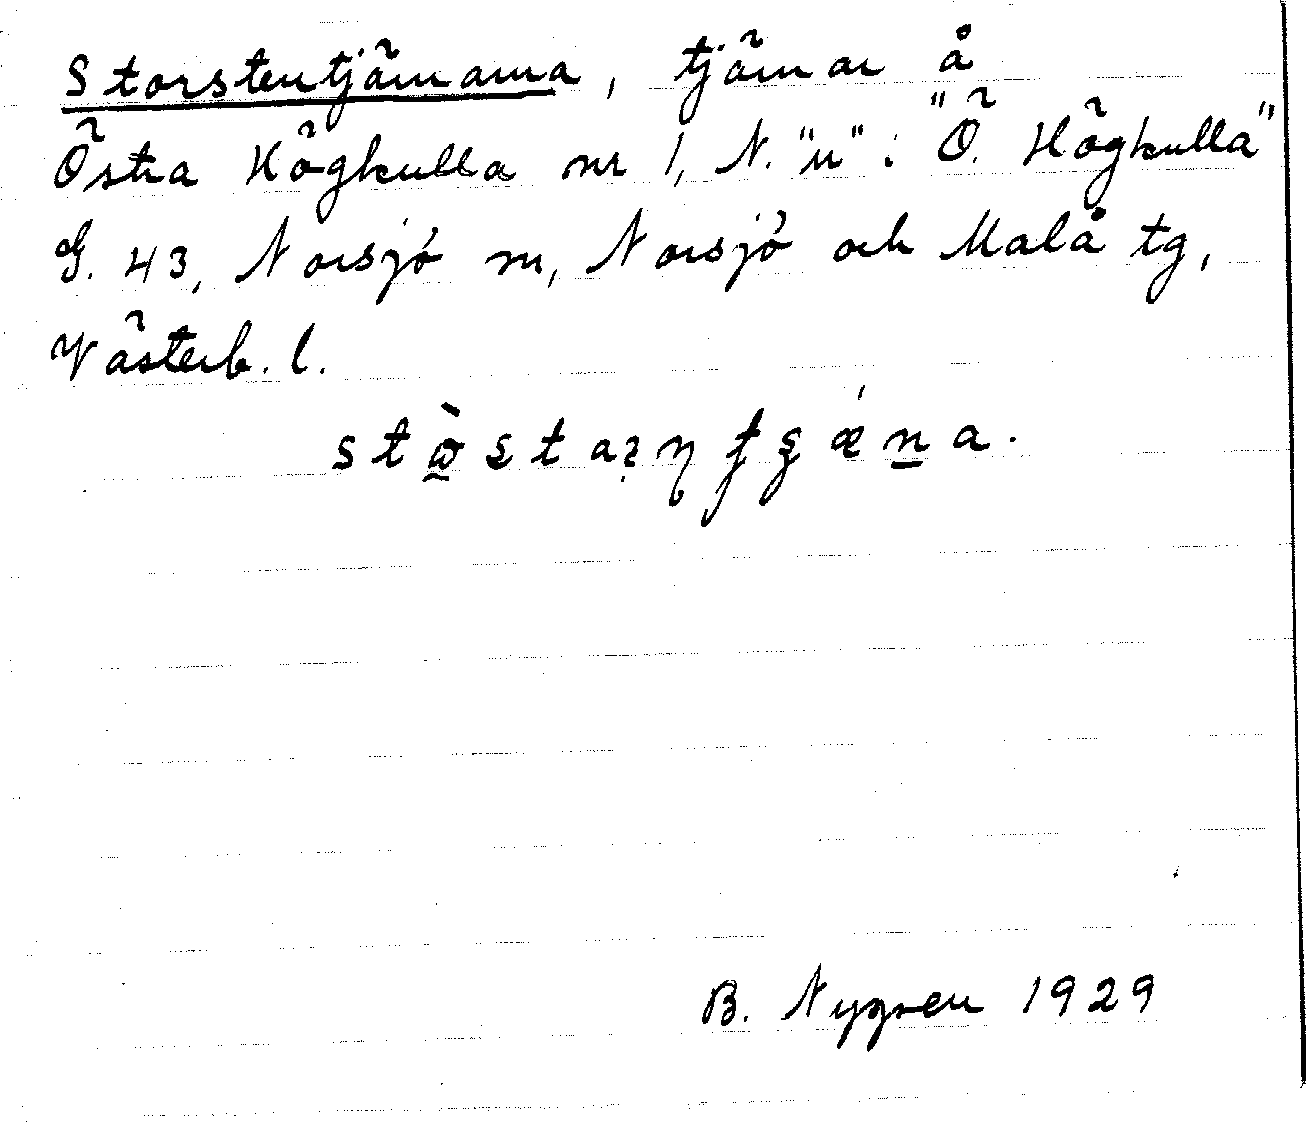 Storstentjärnarna, tjärnar å
Östra Högkulla nr 1, N. "u": "Ö. Högkulla"
G. 43, Norsjö sn, Norsjö och Malå tg,
Västerb. l.
B. Nygren 1929